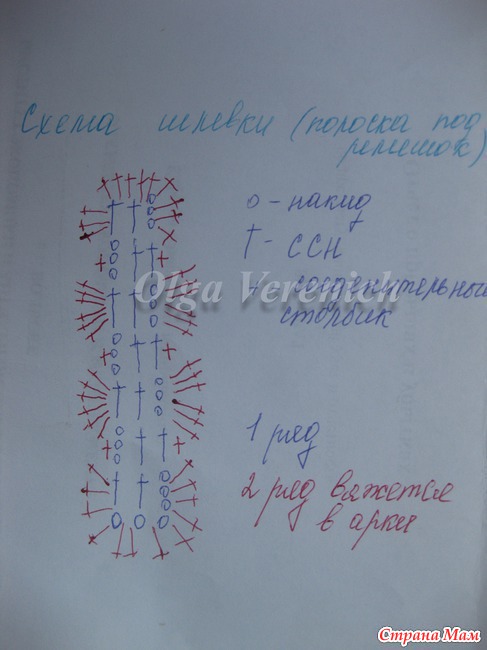 Схема шлевки (полоска под
ремешок)
о - накид
Т - ССН
+ соединительный
столбик
Olga Verenich
1 ряд
2 ряд вяжется
в арки
Страна Мам